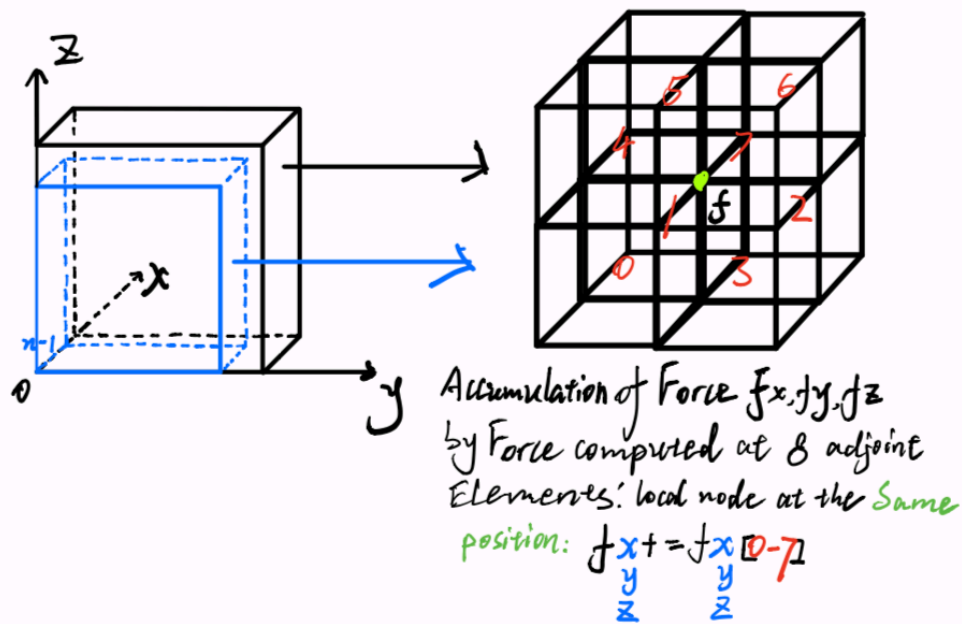 z
x
n-1
0
y
5
6
4
7
f
1
2
0
3
Accumulation of Force fx, fy, fz
by Force computed at 8 adjoint
Elements: local node at the Same
position: f x += f x [0-7]
y y
z z